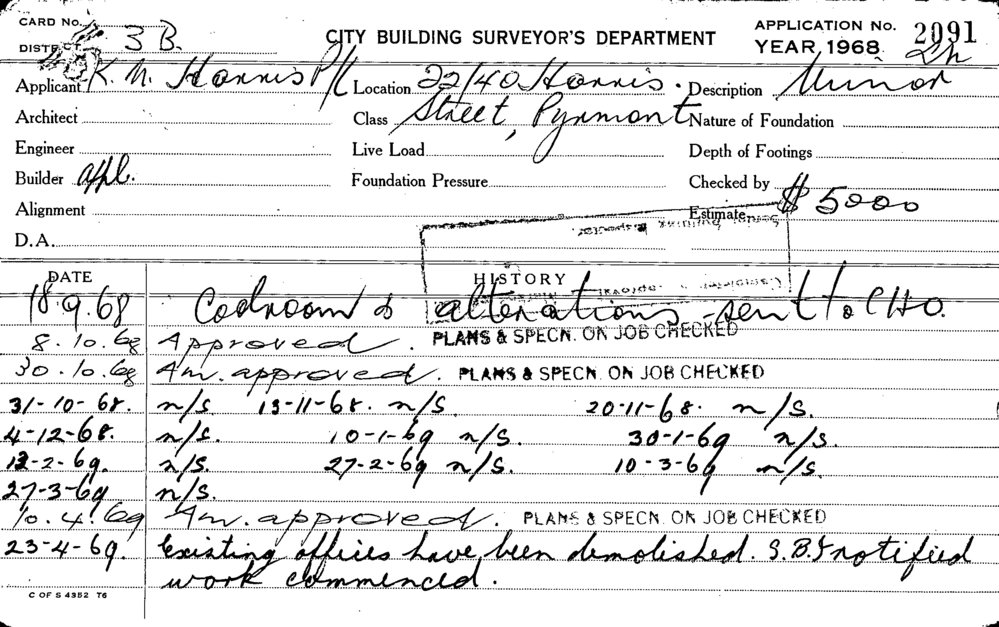 CARD No.
DISTRCT. 3 B. CITY BUILDING SURVEYOR'S DEPARTMENT APPLICATION No. 2091
YEAR, 1968
Applicant K. M. Harris P/L Location 22/40 Harris. Description Minor
Architect Class Street, Pyrmont Nature of Foundation
Engineer Live Load Depth of Footings
Builder appl. Foundation Pressure Checked by
Alignment Estimate $ 5000
D.A.
DATE HISTORY
18.9.68 Coolroom & alterations - sent to CHO.
8.10.68 Approved. PLANS & SPECN. ON JOB CHECKED
30.10.68 Am. approved. PLANS & SPECN. ON JOB CHECKED
31-10-68. n/s. 13-11-68. n/s. 20-11-68. n/s.
4-12-68. n/s. 10-1-69 n/s. 30-1-69 n/s.
12-2-69. n/s. 27-2-69 n/s. 10-3-69 n/s.
27-3-69 n/s.
10.4.69 Am. approved. PLANS & SPECN. ON JOB CHECKED
23-4-69. Existing offices have been demolished. S.B.I notified
work commenced.
C OF S 4352 T6